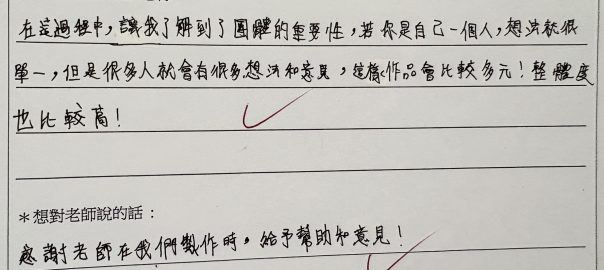 在這過程中，讓我了解到了團體的重要性，若你是自己一個人，想法就很
單一，但是很多人就會有很多想法和意見，這樣作品會比較多元！整體度
也比較高！
＊想對老師說的話：
感謝老師在我們製作時，給予幫助和意見！